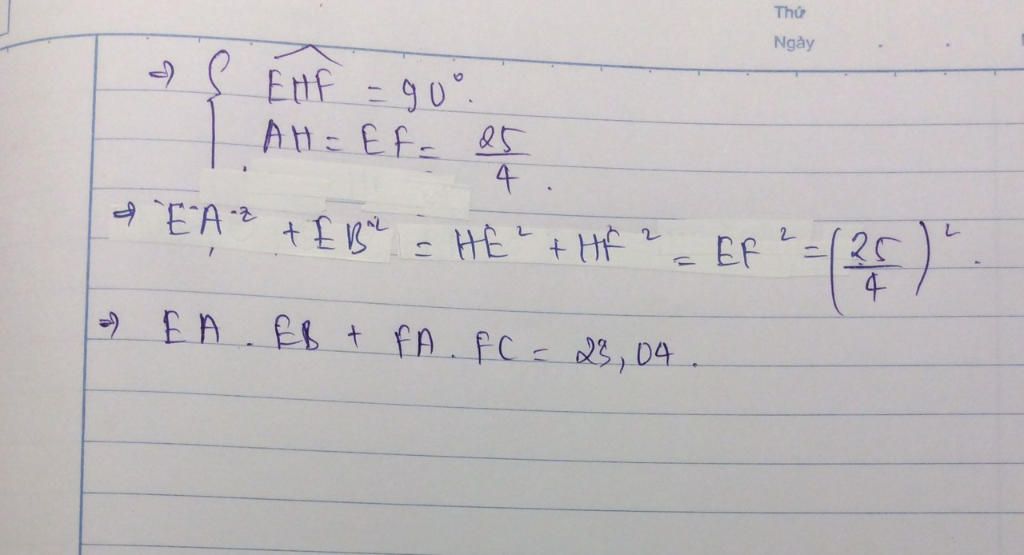 Thứ
Ngày
⇒ { \widehat{EHF} = 90°.
AH = EF = 25/4.
⇒ EA² + EB² = HE² + HF² = EF² = (25/4)².
⇒ EA . EB + FA . FC = 23,04.